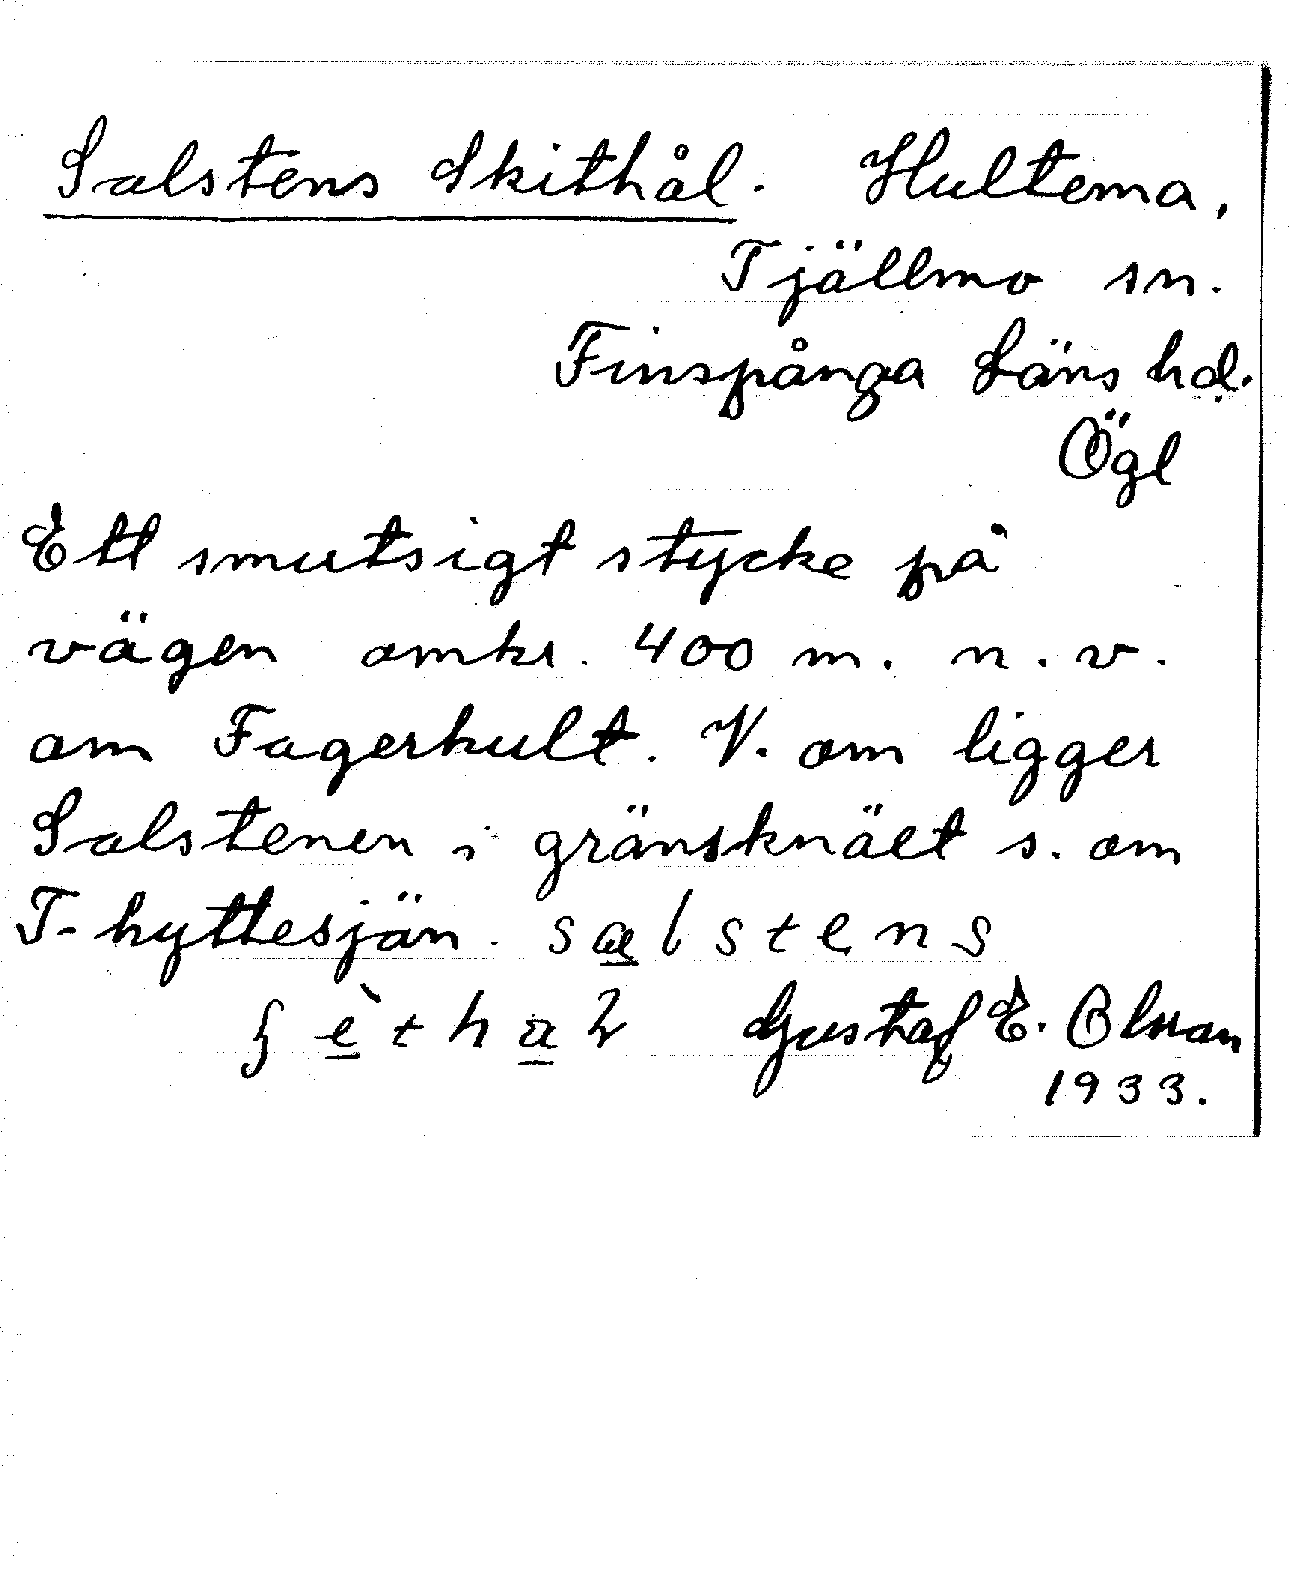 Salstens Skithål. Hultema,
Tjällmo sn.
Finspånga Läns hd.
Ögl
Ett smutsigt stycke på
vägen omkr. 400 m. n. v.
om Fagerhult. V. om ligger
Salstenen i gränsknäet s. om
T-hyttesjän. sælstens
Gustaf E. Olsson
1933.